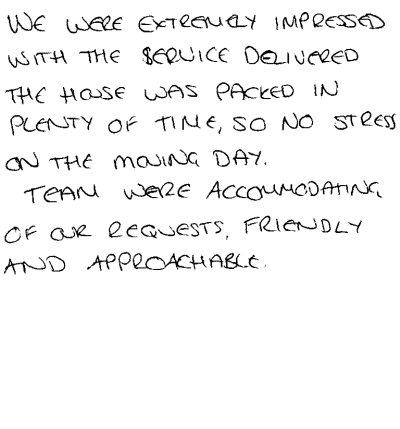 WE WERE EXTREMELY IMPRESSED
WITH THE SERVICE DELIVERED
THE HOUSE WAS PACKED IN
PLENTY OF TIME, SO NO STRESS
ON THE MOVING DAY.
TEAM WERE ACCOMMODATING
OF OUR REQUESTS, FRIENDLY
AND APPROACHABLE.